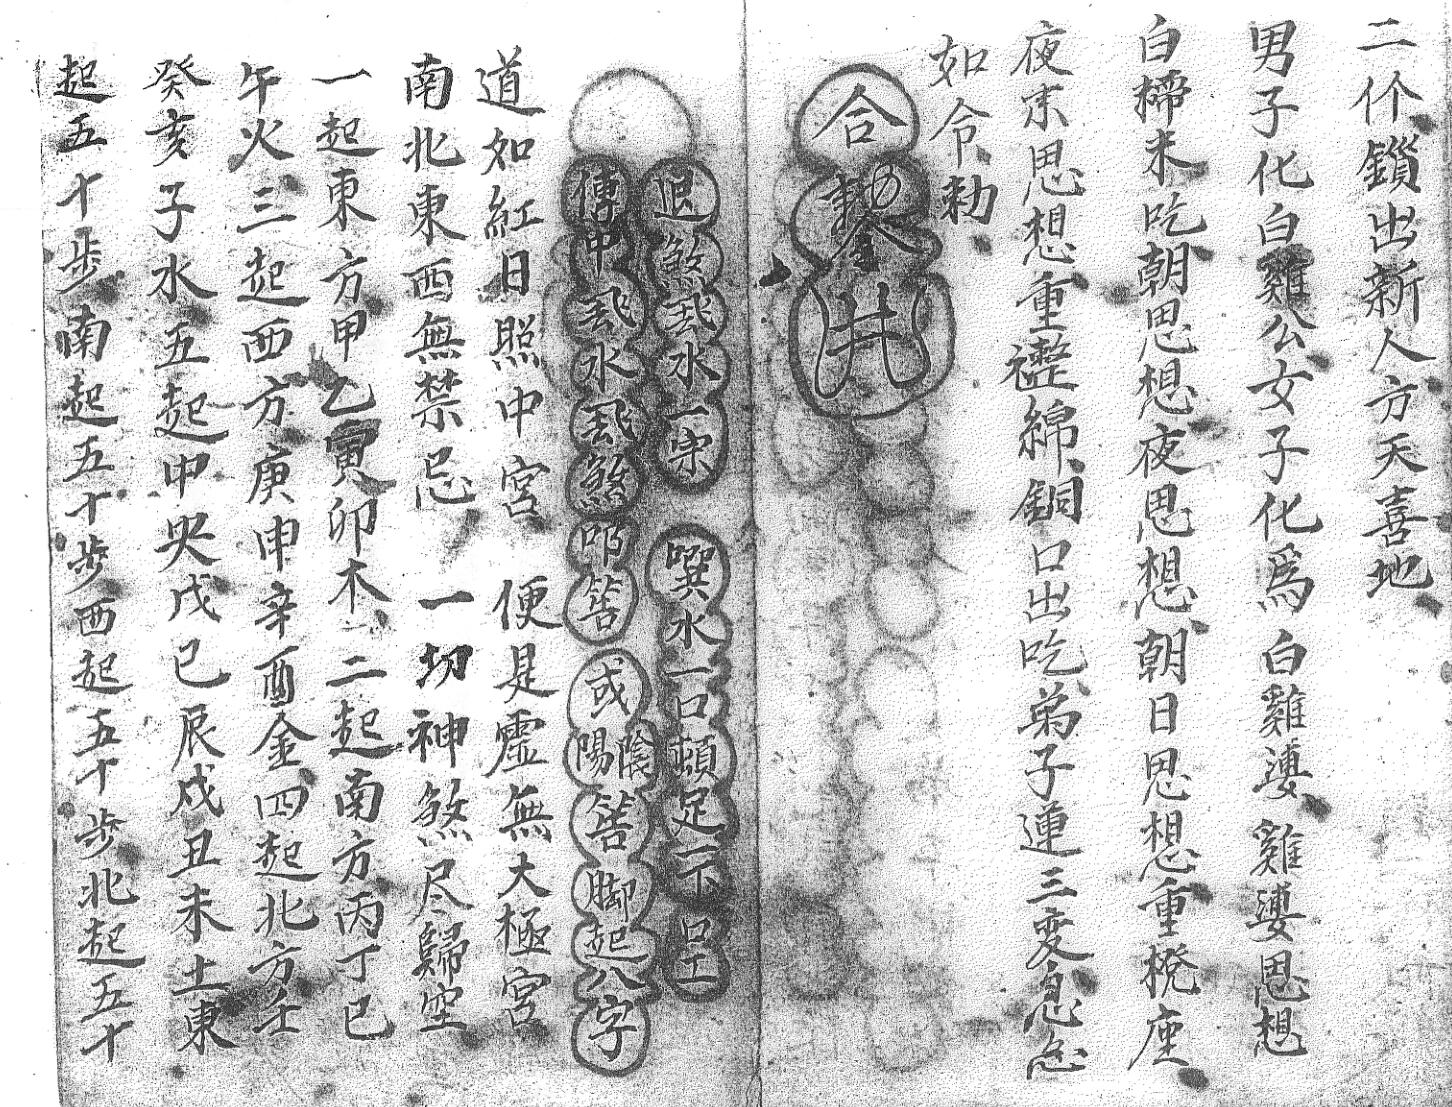 二个鎖出新人方天喜地
男子化白雞公女子化爲白雞溇雞溇思想
白𥻦未吃朝思想夜思想朝日思想重㧱座
夜末思想重𧝞綿銅口出吃弟子運三变急急
如令勅
合
井
退煞𢦏水一宗
噀水一口頓足一下口工
傳中𢦏水𢦏煞叩筶
或陽陰筶脚起八字
道如紅日照中宮 便是虛無大極宮
南北東西無禁忌 一切神煞尽歸空
一起東方甲乙寅卯木二起南方丙丁巳
午火三起西方庚申辛酉金四起北方壬
癸亥子水五起中央戊己辰戍丑未土東
起五十步南起五十步西起五十步北起五十